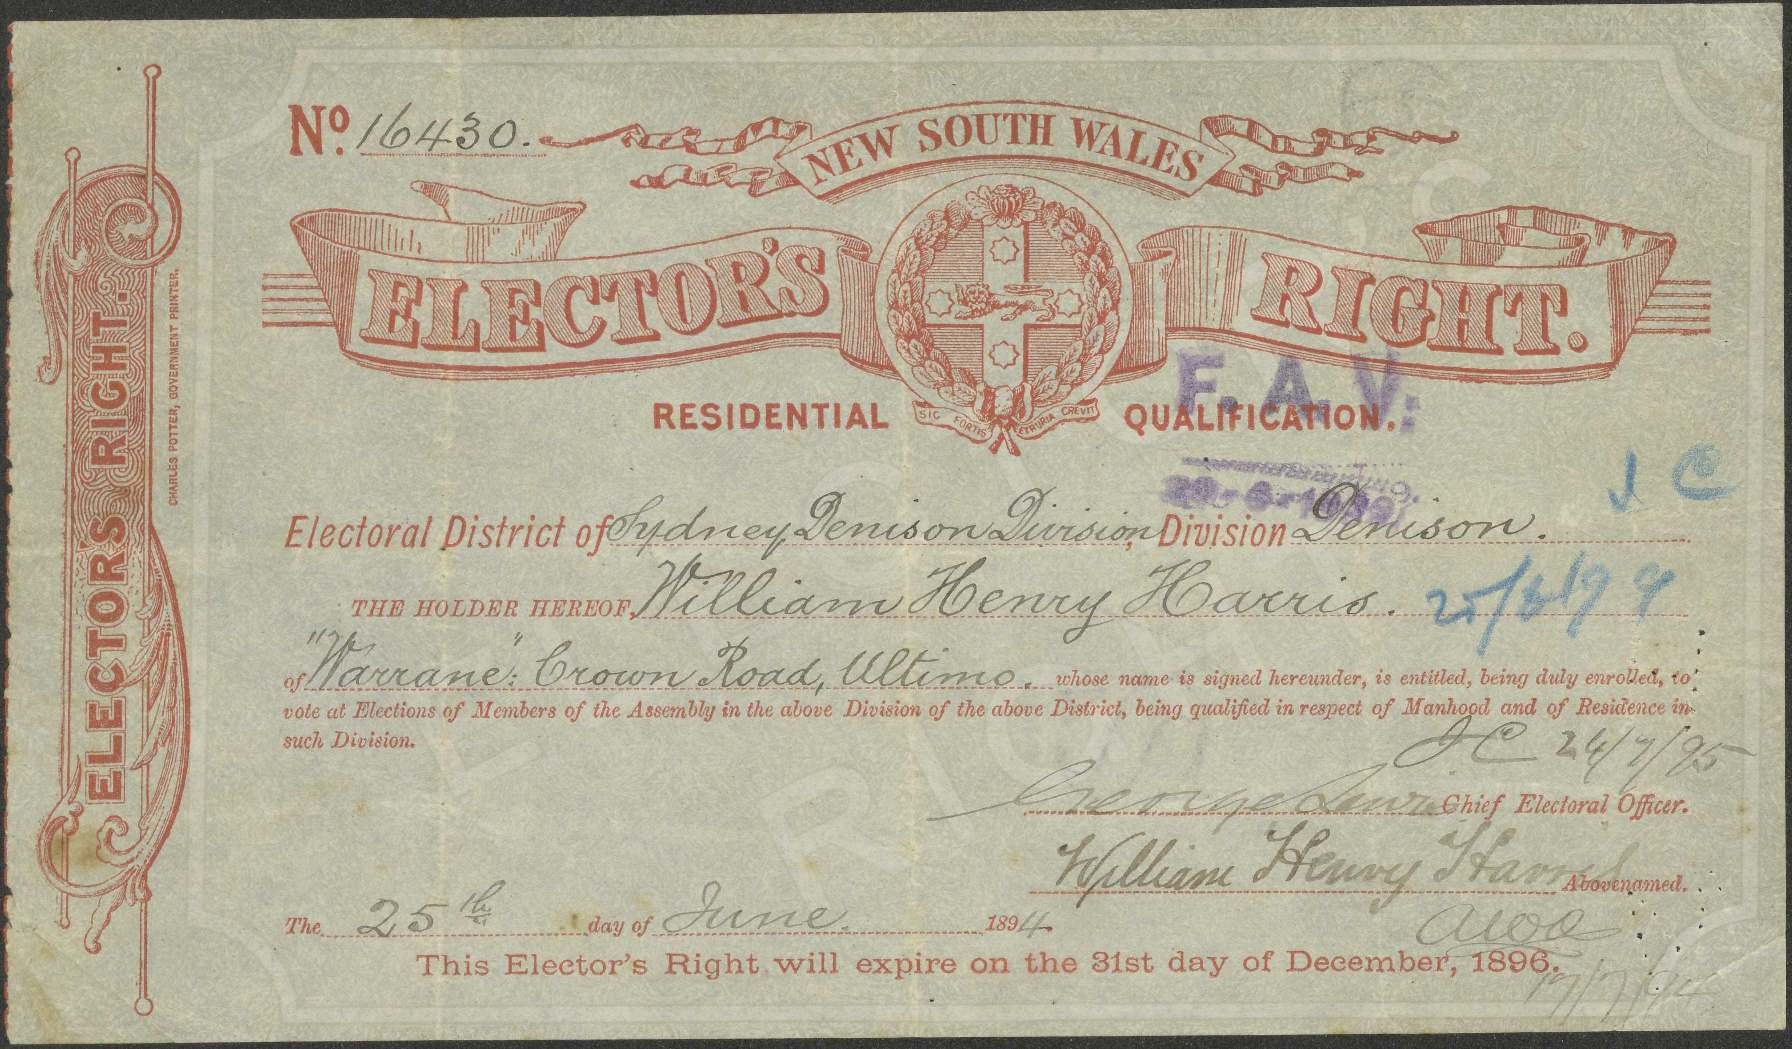 No. 16430.
NEW SOUTH WALES
ELECTOR'S RIGHT.
SIC FORTIS ETRURIA CREVIT
RESIDENTIAL QUALIFICATION.
F. A. V.
J C
Electoral District of Sydney Denison Division, Division Denison.
THE HOLDER HEREOF, William Henry Harris.
of "Warrane": Crown Road, Ultimo. whose name is signed hereunder, is entitled, being duly enrolled, to
vote at Elections of Members of the Assembly in the above Division of the above District, being qualified in respect of Manhood and of Residence in
such Division.
J C 24/7/95
George Lewis Chief Electoral Officer.
William Henry Harris Abovenamed.
The 25th day of June. 1894
This Elector's Right will expire on the 31st day of December, 1896.
17/7/94
ELECTOR'S RIGHT.
CHARLES POTTER, GOVERNMENT PRINTER.